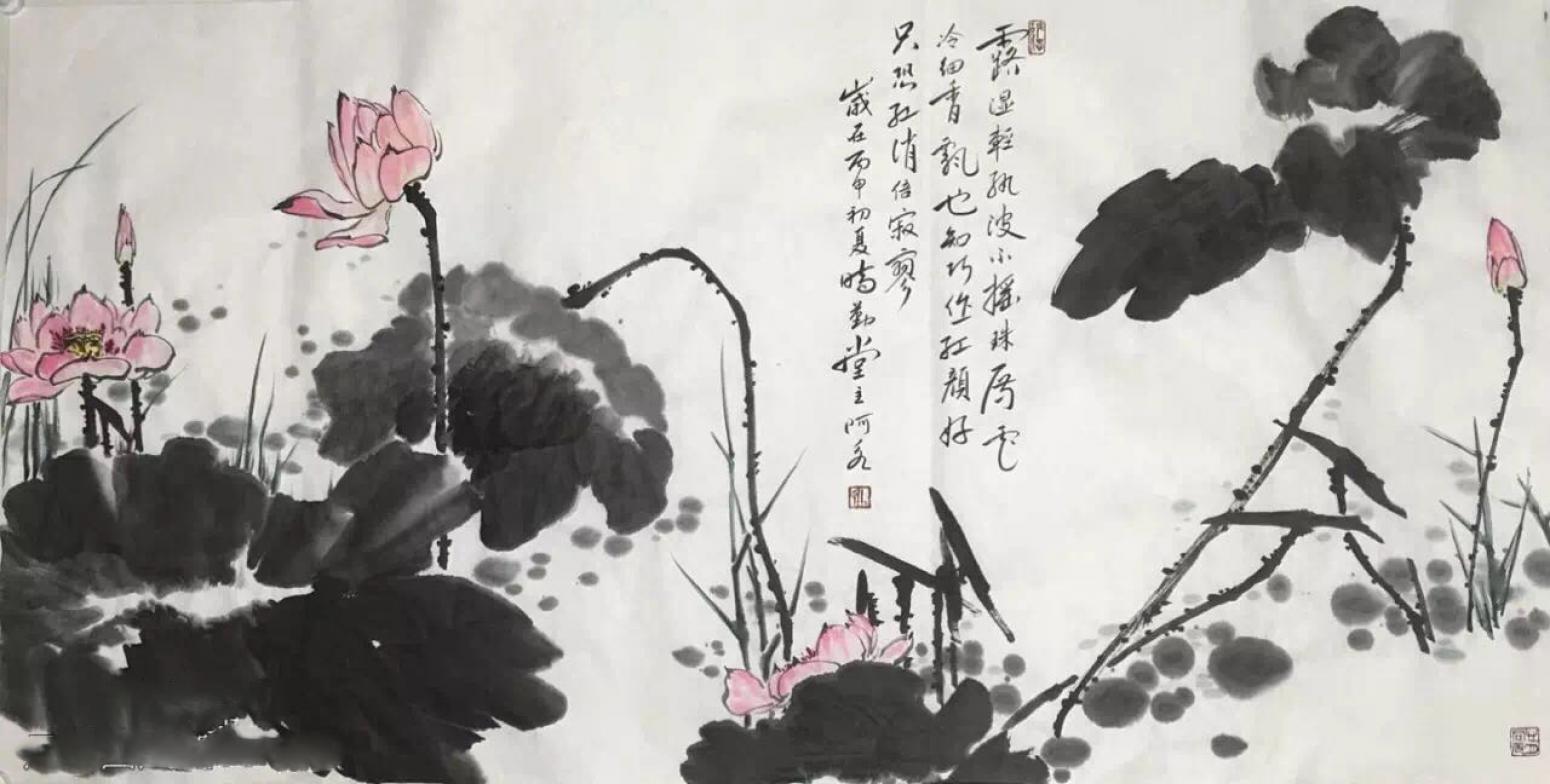 露湿轻纨波小摇珠
冷细香飘也知巧作红颜好
只恐红消倍寂寥
岁在丙申初夏晴勤堂主阿